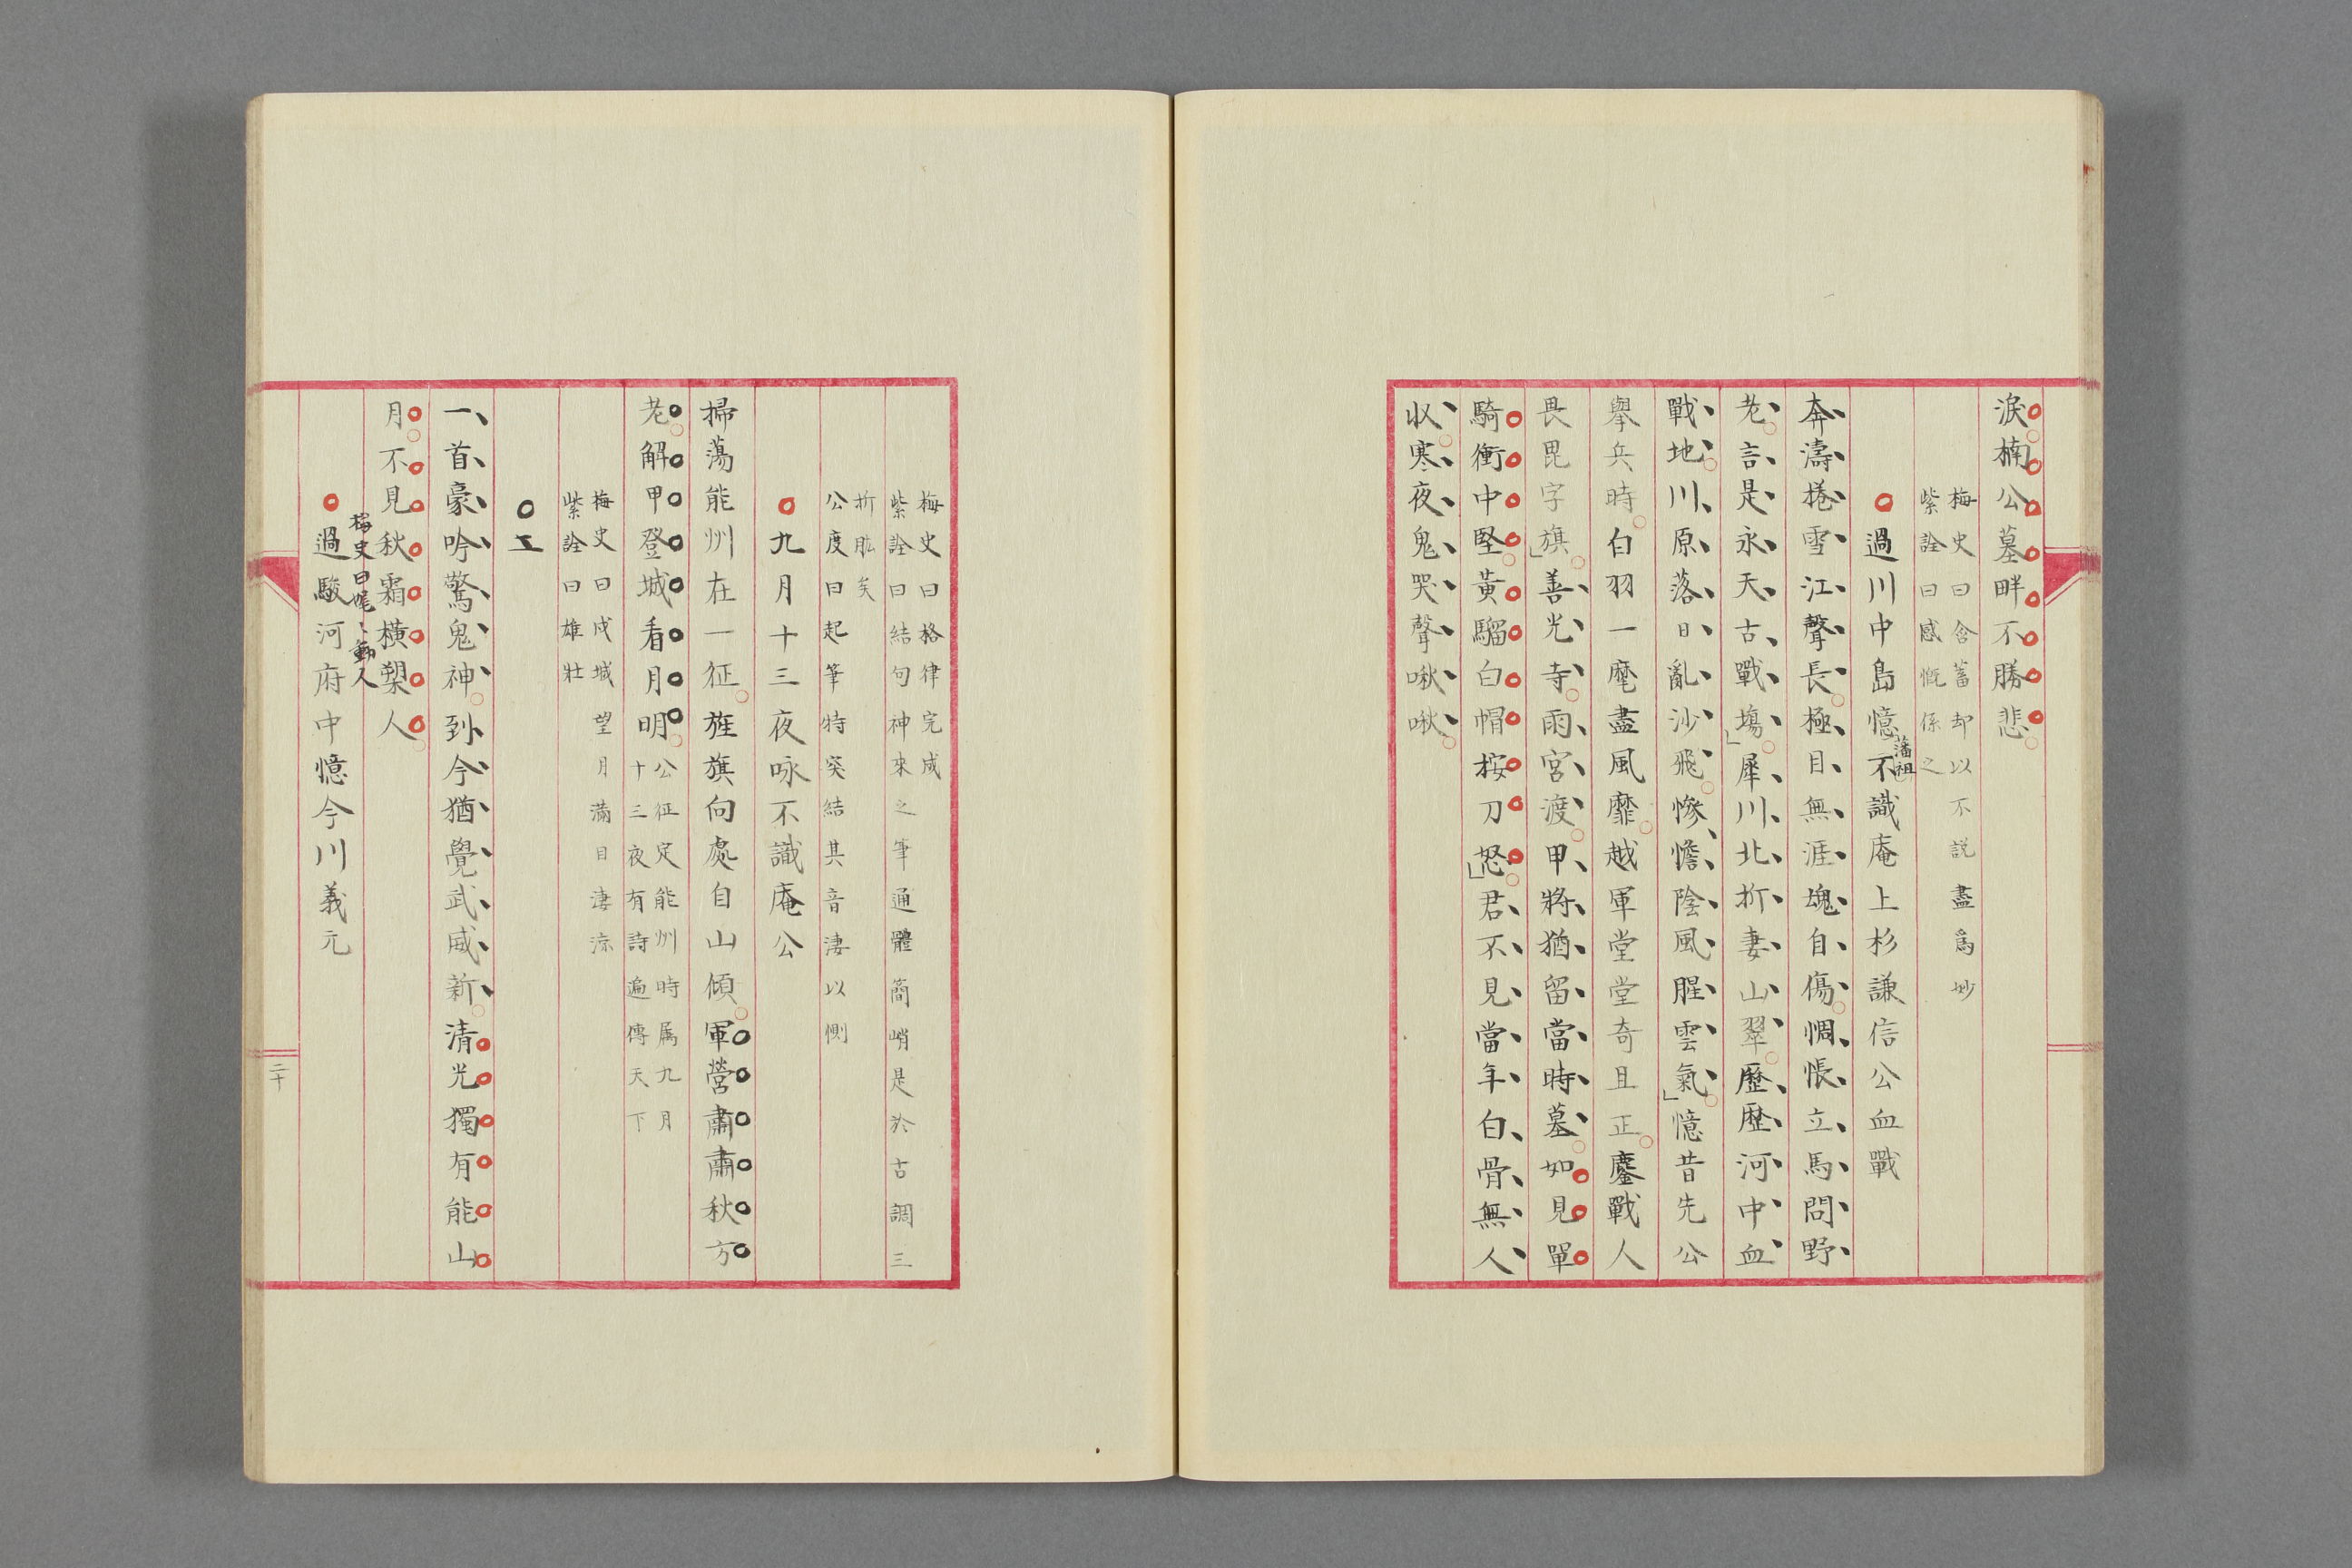 淚楠公墓畔不勝悲
梅史曰含蓄却以不説盡爲妙
紫詮曰感慨係之
過川中島憶藩祖不識庵上杉謙信公血戰
奔濤捲雪江聲長極目無涯魂自傷惆悵立馬問野
老言是永天古戰塲犀川北折妻山翠歷歷河中血
戰地川原落日亂沙飛慘憺陰風腥雲氣憶昔先公
擧兵時白羽一麾盡風靡越軍堂堂奇且正鏖戰人
畏毘字旗善光寺雨宮渡甲將猶留當時墓如見單
騎衝中堅黃騮白帽按刀怒君不見當年白骨無人
收寒夜鬼哭聲啾啾
梅史曰格律完成
紫詮曰結句神來之筆通體簡峭是於古調三
折肱矣
公度曰起筆特突結其音淒以惻
九月十三夜咏不識庵公
掃蕩能州在一征旌旗向處自山傾軍營肅肅秋方
老解甲登城看月明公征定能州時屬九月
十三夜有詩遍傳天下
梅史曰戍城望月滿目淒涼
紫詮曰雄壯
又
一首豪吟驚鬼神到今猶覺武威新清光獨有能山
月不見秋霜橫槊人
梅史曰娓、動人
過駿河府中憶今川義元
二十